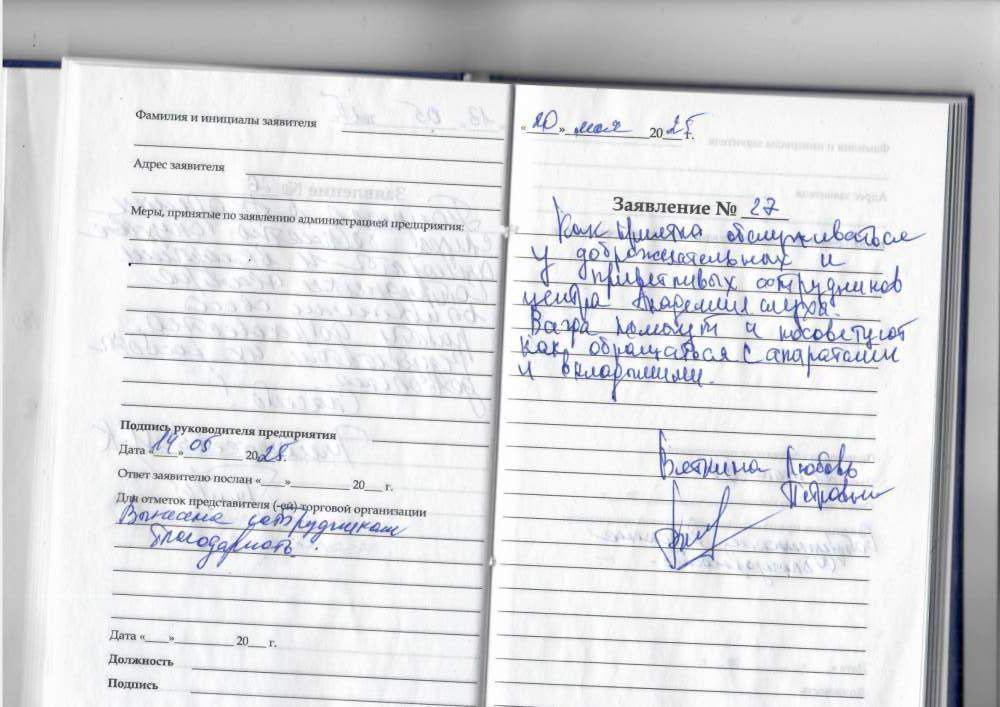 Фамилия и инициалы заявителя
Адрес заявителя
Меры, принятые по заявлению администрацией предприятия:
Подпись руководителя предприятия
Дата «14» 05 2025г.
Ответ заявителю послан «____»__________ 20___ г.
Для отметок представителя (-ей) торговой организации
Вынесена сотрудникам
благодарность.
Дата «____»__________ 20___ г.
Должность
Подпись
«20» мая 2025 г.
Заявление № 27
Как приятно обслуживаться
у доброжелательных и
приветливых сотрудников
центра Академия слуха.
Всегда помогут и посоветуют
как обращаться с апаратами
и вкладышами.
Любовь
Петровна